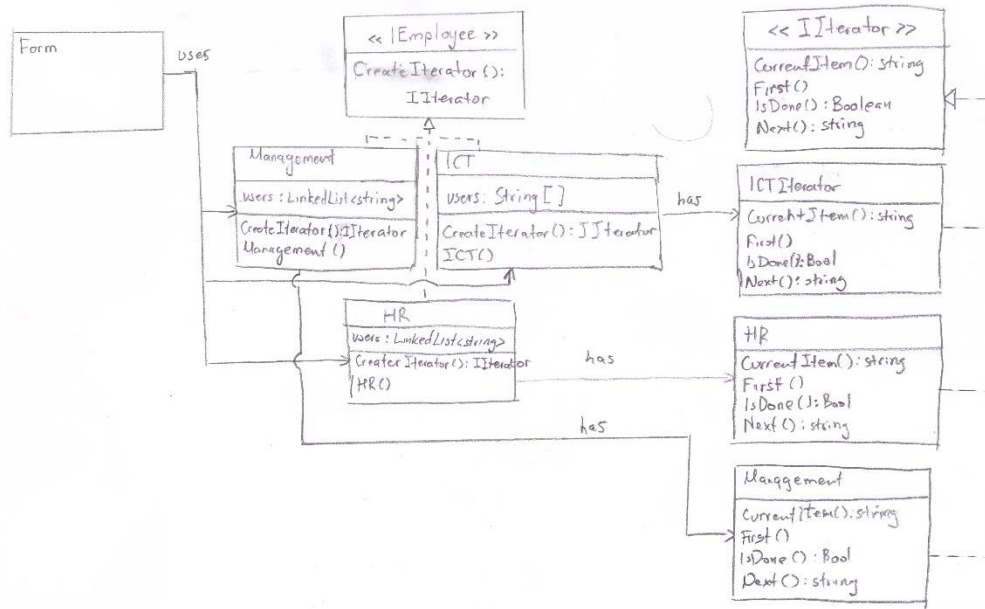 Form
uses
<< IEmployee >>
CreateIterator():
IIterator
<< IIterator >>
CurrentItem(): string
First()
IsDone(): Boolean
Next(): string
Management
users: LinkedList<string>
CreateIterator():IIterator
Management()
ICT
users: String[]
CreateIterator(): IIterator
ICT()
has
ICTIterator
CurrentItem(): string
First()
IsDone():Bool
Next(): string
HR
users: LinkedList<string>
CreaterIterator(): IIterator
HR()
has
HR
CurrentItem(): string
First()
IsDone(): Bool
Next(): string
has
Management
CurrentItem(): string
First()
IsDone(): Bool
Next(): string